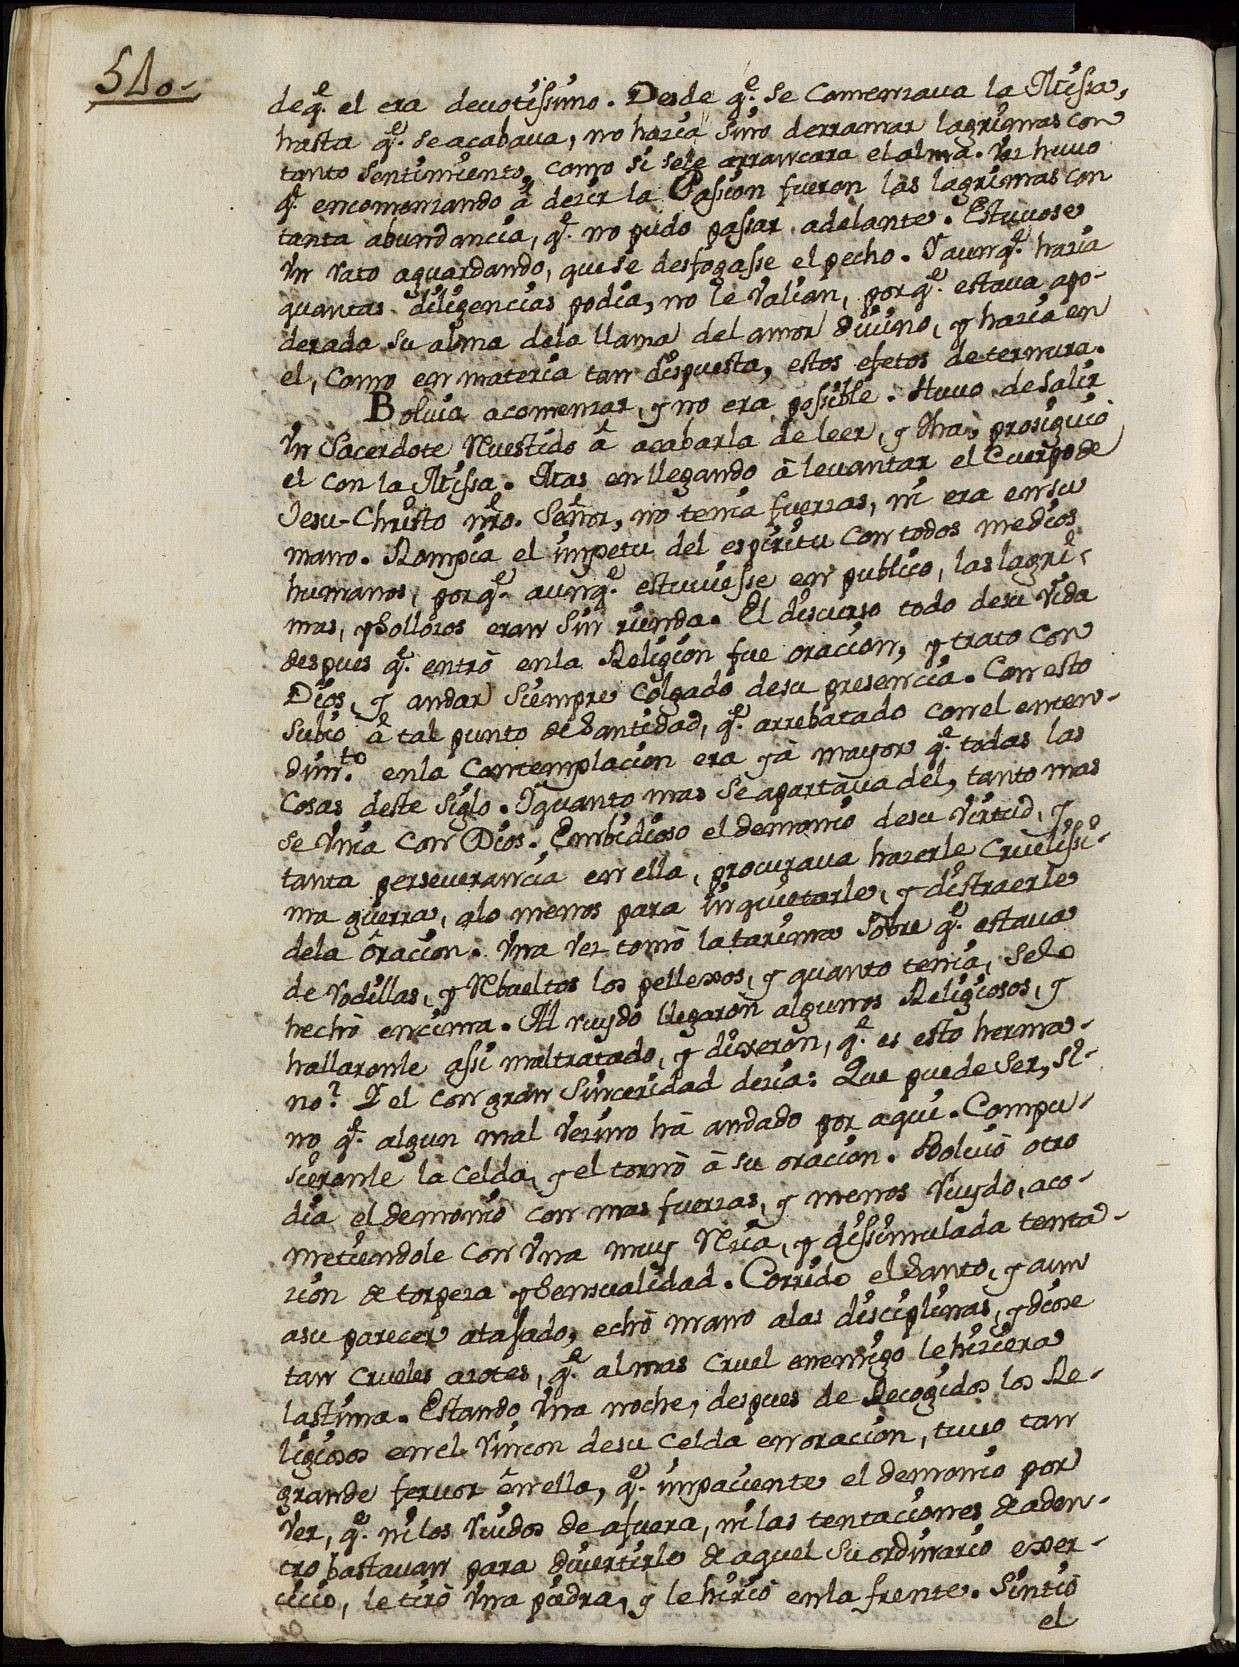 540.
de q.e el era deuotissimo. Desde q.e se comenzaua la Missa,
hasta q.e se acabaua, no hazia sino derramar lagrimas con
tanto sentimiento, como si sele arrancara el alma. Vez huuo
q.e encomenzando â dezir la Passion fueron las lagrimas con
tanta abundancia, q.e no pudo passar adelante. Estuuose
vn rato aguardando, que se desfogasse el pecho. Y aunq.e hazia
quantas diligencias podia, no le valian, porq.e estaua apo-
derada su alma dela llama del amor diuino, y hazia en
el, como en materia tan dispuesta, estos efetos de ternura.
Boluia acomenzar, y no era possible. Huuo de salir
vn Sacerdote Reuestido â acabarla de leer, y dha, prosiguiò
el con la Missa. Mas en llegando à leuantar el Cuerpo de
Jesu-Christo nro. Señor, no tenia fuerzas, ni era en su
mano. Rompia el impetu del espiritu con todos medios
humanos, porq.e aunq.e estuuiesse en publico, las lagri-
mas, y sollozos eran sin rienda. El discurso todo de su vida
despues q.e entrò enla Religion fue oracion, y trato con
Dios, y andar siempre colgado desu presencia. Con esto
subiò â tal punto de Santidad, q.e arrebatado con el enten-
dim.to enla contemplacion era yà mayor q.e todas las
cosas deste siglo. Y quanto mas se apartaua del, tanto mas
se vnia con Dios. Embidioso el demonio desu virtud, y
tanta perseuerancia en ella, procuraua hazerle cruelissi-
ma guerra, alo menos para inquietarle, y distraerle
dela oracion. Vna vez tomò la tarima sobre q.e estaua
de rodillas, y Rebueltos los pellexos, y quanto tenia, selo
hechò encima. Al ruydo llegaron algunos Religiosos, y
hallaronle assi maltratado, y dixeron, q.e es esto herma-
no? Y el con gran sinceridad dezia: Que puede ser, si-
no q.e algun mal vezino hà andado por aqui. Compu-
sieronle la celda, y el tornò à su oracion. Boluiò otro
dia el demonio con mas fuerzas, y menos ruydo, aco-
metiendole con vna muy Rezia, y dissimulada tenta-
zion de torpeza y Sensualidad. Corrido el Santo, y aun
asu parecer atajado, echò mano alas disciplinas, y diose
tan crueles azotes, q.e al mas cruel enemigo le hiziera
lastima. Estando vna noche, despues de Recogidos los Re-
ligiosos en el rincon desu celda en oracion, tuuo tan
grande feruor en ella, q.e impaciente el demonio por
ver, q.e ni los ruidos de afuera, ni las tentaciones de aden-
tro bastauan para diuertirle de aquel su ordinario exer-
cicio, le tirò vna piedra, y le hiriò enla frente. Sintiò
el